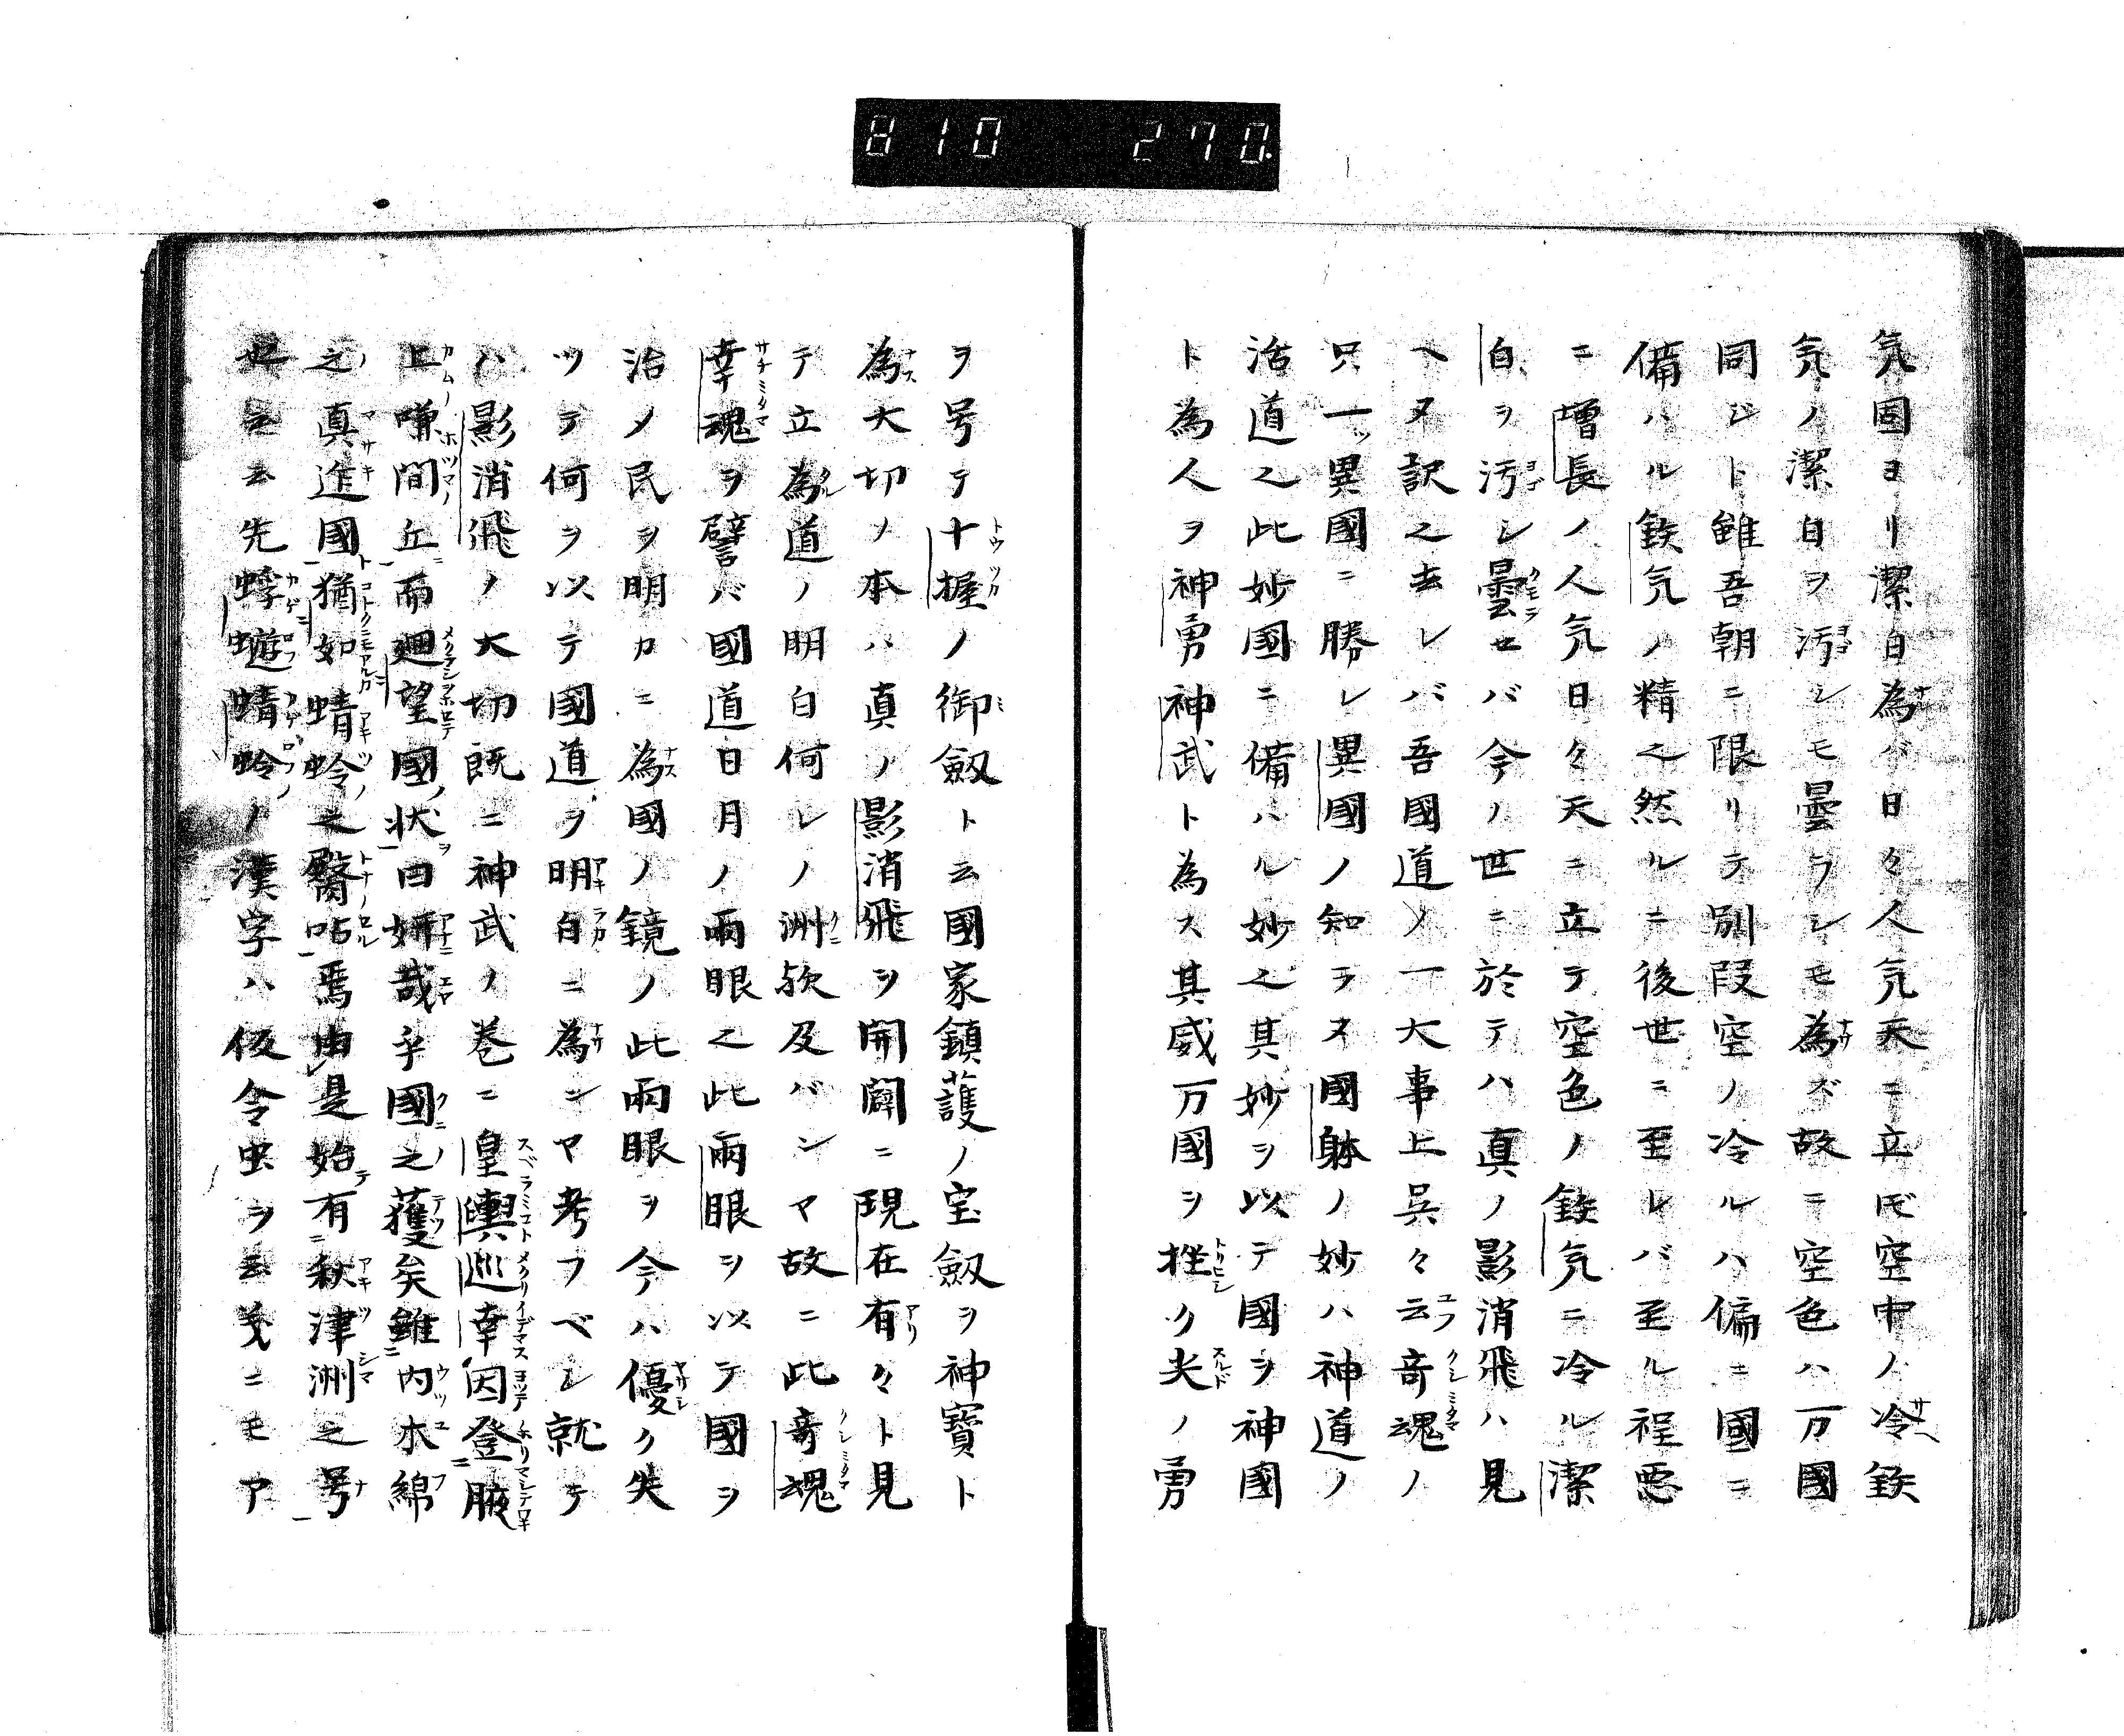 810 270.
気国ヨリ潔白為バ日々人気天ニ立𪜈空中ノ冷鉄
気ノ潔白ヲ汚シモ曇ラシモ為ズ故ニ空色ハ万國
同ジト雖吾朝ニ限リテ別段空ノ冷ルハ偏ニ國ニ
備ハル鉄気ノ精之然ルニ後世ニ至レバ至ル程悪
ニ増長ノ人気日々天ニ立テ空色ノ鉄気ニ冷ル潔
白ヲ汚シ曇セバ今ノ世ニ於テハ真ノ影消飛ハ見
ヘヌ訳之去レバ吾國道ノ一大事上呉々云奇魂ノ
只一ッ異國ニ勝レ異國ノ知ラヌ國躰ノ妙ハ神道ノ
治道之此妙國ニ備ハル妙之其妙ヲ以テ國ヲ神國
ト為人ヲ神勇神武ト為ス其威万國ヲ挫ク尖ノ勇
ヲ号テ十握ノ御劔ト云國家鎮護ノ宝劔ヲ神寶ト
為大切ノ本ハ真ノ影消飛ヲ開闢ニ現在有々ト見
テ立為道ノ明白何レノ洲欤及バンヤ故ニ此竒魂
幸魂ヲ譬バ國道日月ノ兩眼之此兩眼ヲ以テ國ヲ
治メ民ヲ明カニ為國ノ鏡ノ此兩眼ヲ今ハ優ク失
ツテ何ヲ以テ國道ヲ明白ニ為ンヤ考フベシ就テ
ハ影消飛ノ大切既ニ神武ノ巻ニ皇輿巡幸因登腋
上嗛間丘而廻望國状曰妍哉乎國之獲矣雖内木綿
之真迮國猶如蜻蛉之臀呫焉由是始有秋津洲之号
也云云先蜉蝣蜻蛉ノ漢字ハ仮令虫ヲ云義ニモア